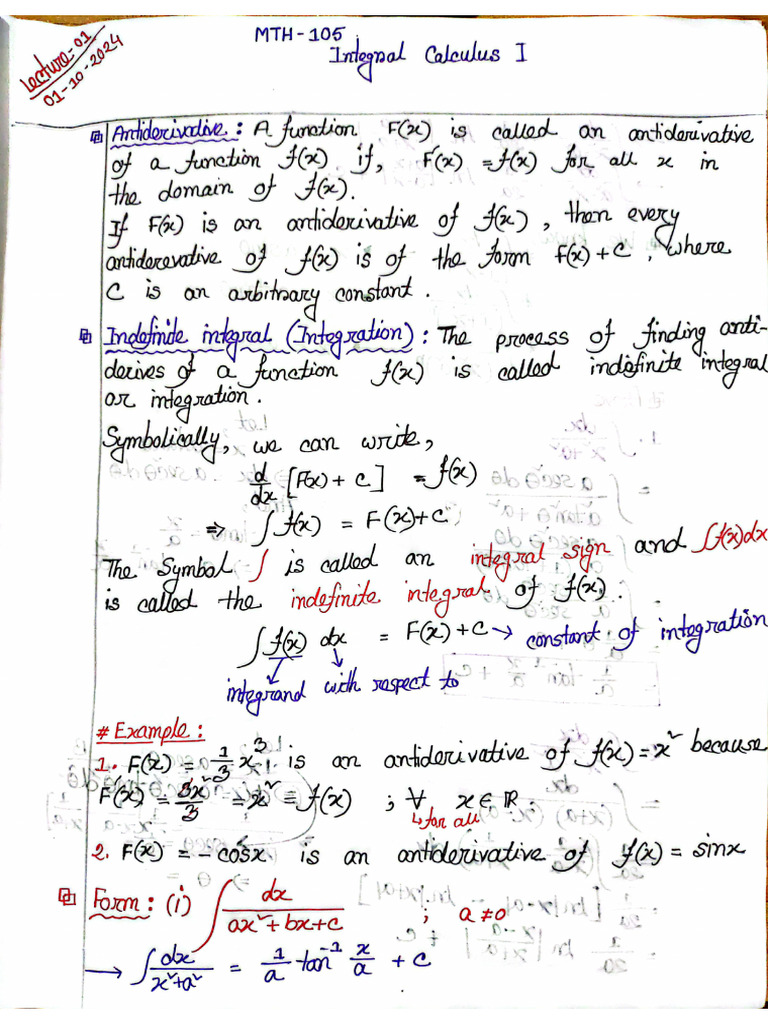 Lecture-01
01-10-2024
MTH-105
Integral Calculus I
Antiderivative : A function F(x) is called an antiderivative
of a function f(x) if, F'(x) = f(x) for all x in
the domain of f(x).
If F(x) is an antiderivative of f(x), then every
antiderevative of f(x) is of the form F(x)+C, where
C is an arbitrary constant.
Indefinite integral (Integration) : The process of finding anti-
derives of a function f(x) is called indefinite integral
or integration.
Symbolically, we can write,
d/dx [F(x) + C] = f(x)
⇒ ∫ f(x) = F(x)+C
The Symbol ∫ is called an integral sign and ∫f(x)dx
is called the indefinite integral of f(x).
∫ f(x) dx = F(x)+C → constant of integration
integrand with respect to
# Example :
1. F(x) = 1/3 x³ is an antiderivative of f(x) = x² because
F'(x) = 3x²/3 = x² = f(x) ; ∀ x ∈ ℝ.
↳ for all
2. F(x) = -cosx is an antiderivative of f(x) = sinx
Form : (i) ∫ dx/(ax²+bx+c) ; a ≠ 0
→ ∫ dx/(x²+a²) = 1/a tan⁻¹ x/a + C